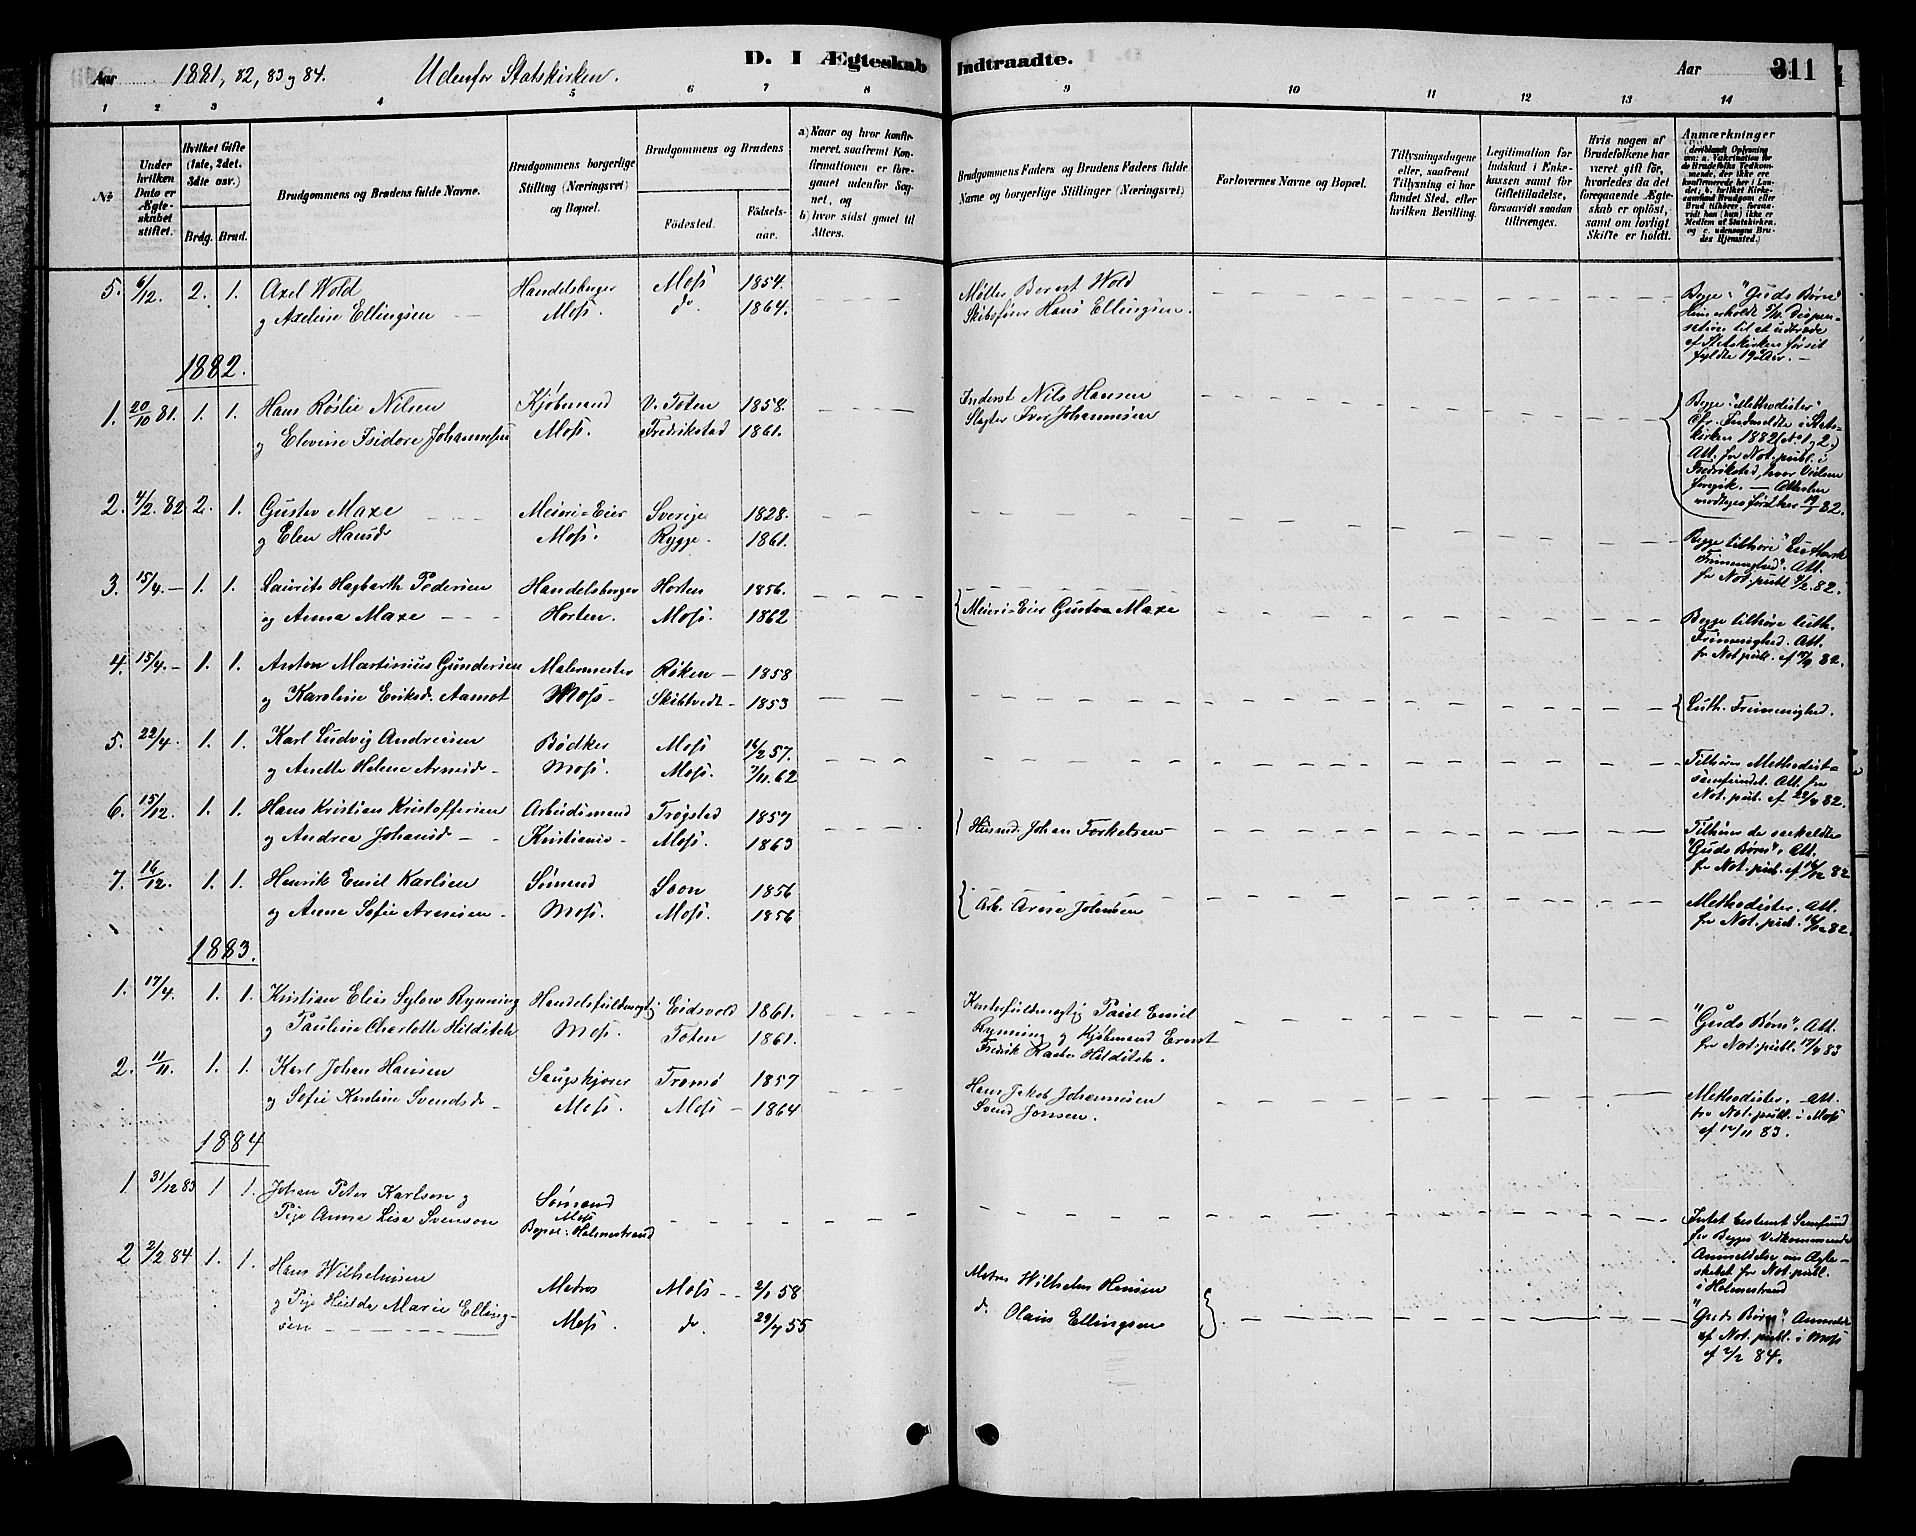 Aar 1881, 82, 83 og 84. Udenfor Statskirken. D. I Ægteskab Indtraadte. Aar 311
1 2 3 4 5 6 7 8 9 10 11 12 13 14
No
Under hvilken Dato er Ægteskabet stiftet.
Hvilket Gifte (1ste, 2det, 3die osv.)
Brdg. Brud.
Brudgommens og Brudens fulde Navne.
Brudgommens borgerlige Stilling (Næringsvei) og Bopæl.
Brudgommens og Brudens
Fødested. Fødselsaar.
a) Naar og hvor konfirmeret, saafremt Konfirmationen er foregaaet udenfor Sognet, og
b) hvor sidst gaaet til Alters.
Brudgommens Faders og Brudens Faders fulde Navne og borgerlige Stillinger (Næringsvei)
Forlovernes Navne og Bopæl.
Tillysningsdagene eller, saafremt Tillysning ei har fundet Sted, efter hvilken Bevilling.
Legitimation for Indskud i Enkekassen samt for Giftetilladelse, forsaavidt saadan tiltrænges.
Hvis nogen af Brudefolkene har været gift før, hvorledes da det foregaaende Ægteskab er opløst, samt om lovligt Skifte er holdt.
Anmærkninger
5. 6/12. 2. 1. Axel Wold Handelsborger Moss 1854. Møller Bernt Wold
og Axeline Ellingsen Moss. do. 1864. Skibsfører Hans Ellingsen.
Begge "Guds Børn"
Hun erholdt Dispensation til at udtræde
af Statskirken før sit
fyldte 19de Aar. —
1882.
1. 20/10 81. 1. 1. Hans Røslie Nilsen Kjøbmand V. Toten 1858. Inderst Nils Hansen
og Elevine Isidore Johannesen Moss. Fredrikstad 1861. Slagter Iver Johannesen
Begge "Methodister"
Cfr. Indmeldte i Statskirken 1882 (No. 1 og 2.)
Att. fr Not. publ. i
Fredrikstad, hvor Vielsen
foregik. — Attesten
modtoges først her 82.
2. 4/2. 82 2. 1. Gustav Maxe Meieri-Eier Sverige 1828.
og Elen Hansd. Moss. Rygge. 1861.
Begge tilhøre "Luthersk
Frimenighed". Att.
fr Not. publ. 4/2. 82.
3. 15/4. — 1. 1. Laurits Hagbarth Pedersen Handelsborger Horten 1856.
og Anna Maxe Horten. Moss. 1862 Meieri-Eier Gustav Maxe
Begge tilhøre luth.
Frimenighed. Att.
fr Not. publ. af 82.
4. 15/4. — 1. 1. Anton Martinius Gundersen Malermester Røken — 1858
og Karoline Eriksd. Aamot Moss — Skibtvedt — 1853
Luth. Frimenighed.
5. 22/4. 1. 1. Karl Ludvig Andresen Bødker Moss 16/2 57.
og Anette Helene Arnesd. Moss. Moss. 7/11. 62
Tilhører Methodistsamfundet. Att. fra
Not. pub. af 82.
6. 15/12. 1. 1. Hans Kristian Kristoffersen Arbeidsmand Trøgstad 1857
og Andrea Johansd. Kristiania — Moss. 1863 Husmd. Johan Torkelsen
Tilhører de saakaldte
"Guds Børn". Att.
fr Not. pub. af 82
7. 16/12. 1. 1. Henrik Emil Karlsen Sømand Soon 1856
og Anna Sofie Arnesen Moss. Moss. 1856 Arb. Arne Johnsen
Methodister. Att.
fr Not. pub. 82.
1883.
1. 17/4. 1. 1. Kristian Elias Sylow Rynning Handelsfuldmegtig Eidsvold 1861.
og Pauline Charlotte Hilditch Moss. Toten 1861.
Kontorfuldmegtig Paul Emil
Rynning og Kjøbmand Ernst
Fredrik Hilditch.
"Guds Børn". Att.
fr Not. publ. 17/4 83
2. 11/11. 1. 1. Karl Johan Hansen Saugskjører Tromø 1857 Hans Jakob Johannesen
og Sofie Karoline Svendsd. — Moss. Moss — 1864 Svend Jonsen.
Methodister. — Att.
fr Not. publ. i Moss
af 12/11 83.
1884
1. 31/12 83 1 1. Johan Peter Karlson og Sømand
Pige Anna Lisa Svenson Moss
Bopæl: Holmestrand
Intet bestemt Samfund
for Begges Vedkommende
Anmeldelse om Ægteskabet fr Not. publ.
i Holmestrand
2 2/2 84 1. 1. Hans Wilhelmsen Matros Moss — 2/1 58 Matros Wilhelm Hansen
og Pige Hulda Marie Ellingsen Moss. do. 29/7 55 do. Olaus Ellingsen
"Guds Børn". Anmeldt
af Not. publ. i Moss
af 2/2 84.